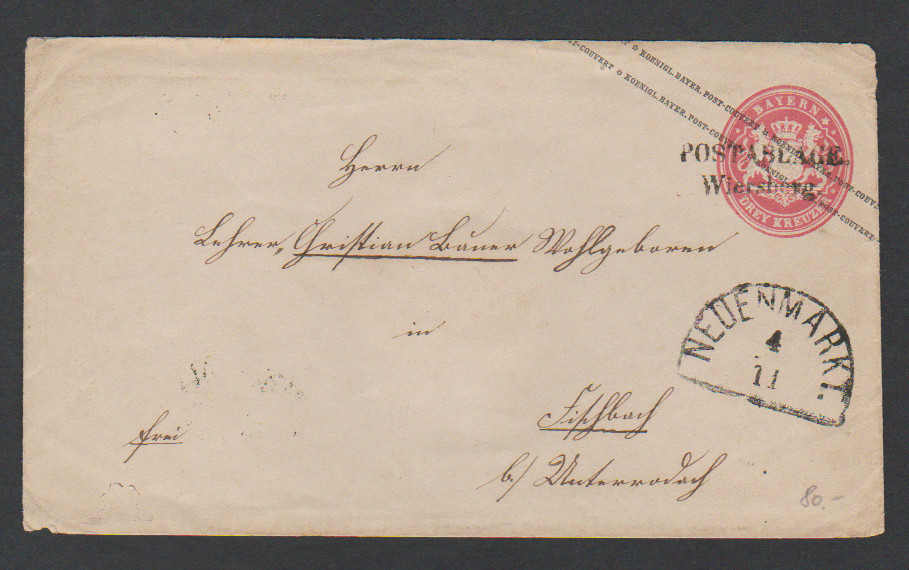 KOENIGL. BAYER. POST-COUVERT ✿ KOENIGL.
POST-COUVERT ✿ KOENIGL. BAYER. POST-COUVERT
BAYERN
DREY KREUZER
POSTABLAGE.
Wiersberg.
Herrn
Lehrer Christian Bauer Wohlgeboren
in
NEUENMARKT.
4
11
Fischbach
frei
b/ Unterrodach
80.-